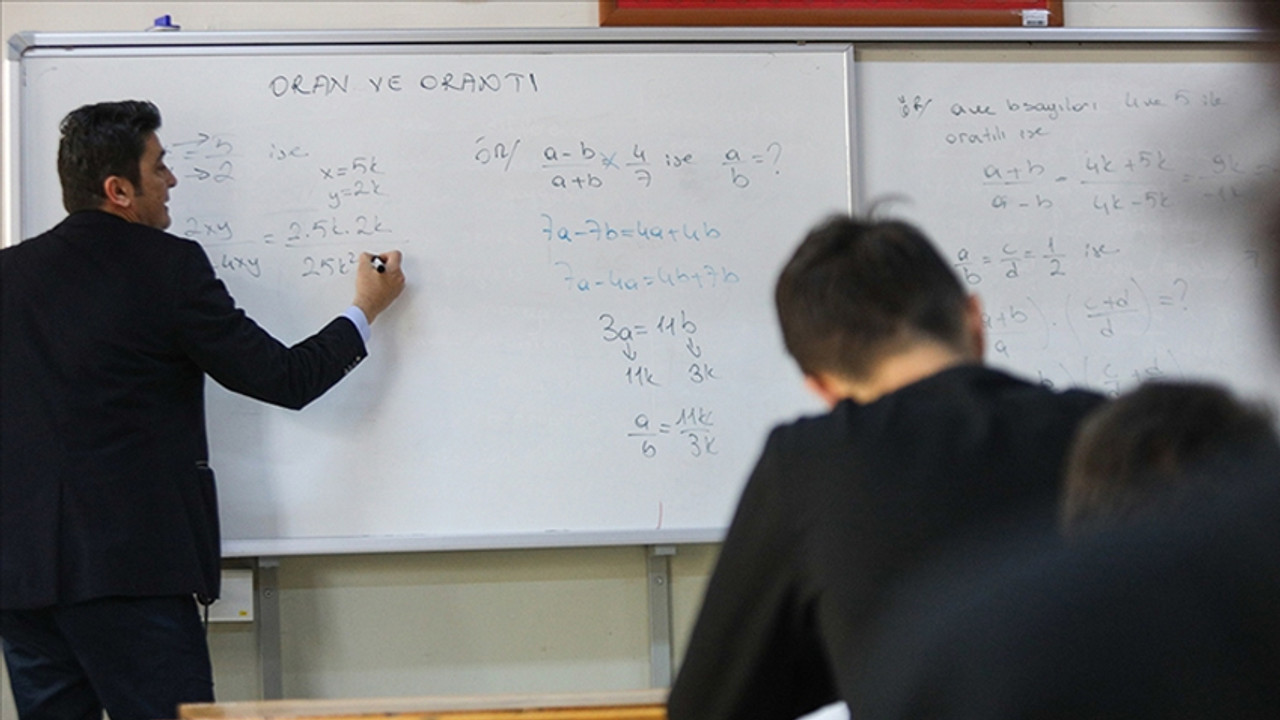 ORAN VE ORANTI
→ 5
= — ise
→ 2
x=5k
y=2k
2xy / 4xy = 2.5k.2k / 25k²
ÖR/ a-b / a+b × 4/7 ise a/b =?
7a-7b=4a+4b
7a-4a=4b+7b
3a=11b
↓ ↓
11k 3k
a/b = 11k/3k
ÖR/ a ve b sayıları 4 ve 5 ile
orantılı ise
a+b / a-b = 4k+5k / 4k-5k = 9k / -1k =
a/b = c/d = 1/2 ise
(a+b / a) . (c+d / d) =?